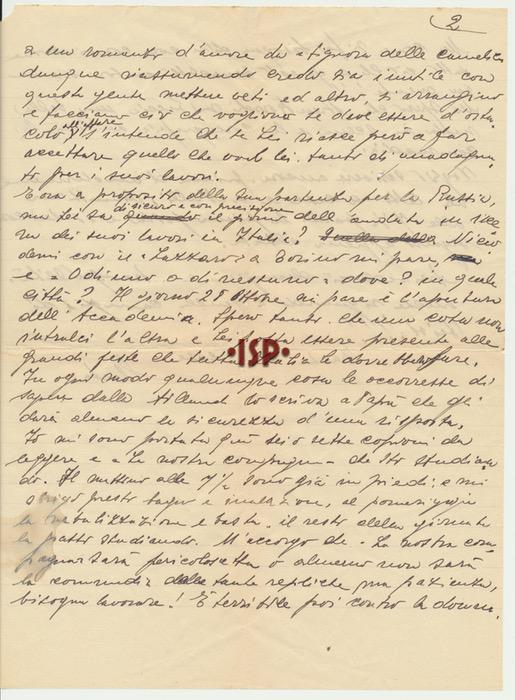 2
a un romanto d'amore da "signora delle camelie
dunque riassumendo credo sia inutile con
questa gente mettere veti ed altro, si arrangino
e facciano ciò che vogliono te deve essere d'osta
colo s'intende che se lei riesce però a far
accettare quello che vuole lei. tanto di guadagna
to per i suoi lavori.
E ora a proposito della sua partenza per la Russia,
di sicuro e con precisione
mi lei sa il giorno delle andate in sce
na dei suoi lavori in Italia? Nico
demi con il "Lazzaro" a Torino mi pare,
e "O di uno o di nessuno" dove? in quale
città? Il giorno 28 Ottobre mi pare è l'apertura
dell'Accademia. Spero tanto che una cosa non
intralci l'altra e Lei possa essere presente alle
grandi feste che tutta Italia le dovrebbe fare.
ISP
In ogni modo qualunque cosa le occorresse di
sapere dalla scriva a Papà che gli
darà almeno la sicurezza d'una risposta.
Io mi sono portata qui sei o sette copioni da
leggere e "La nostra compagna" che sto studian
do. Il mattino alle 7½ sono già in piedi e mi
presto bagno e inalazione, al pomeriggio
la nebulizzazione e basta. il resto della giornata
la passo studiando. M'accorgo che "La nostra com
pagna" sarà pericolosetta o almeno non sarà
la commedia dalle tante repliche ma pazienza,
bisogna lavorare! È terribile poi contro la donna.